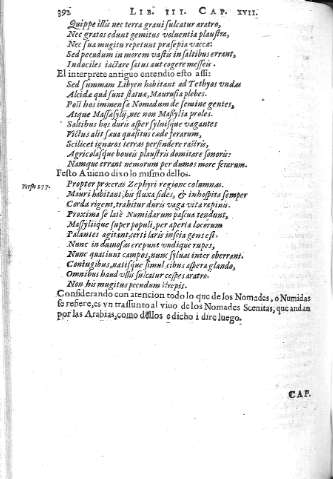 392 LIB. III. CAP. XVII.
Quippe illis nec terra graui sulcatur aratro,
Nec gratos edunt gemitus voluentia plaustra,
Nec sua mugitu repetunt præsepia vaccæ:
Sed pecudum in morem vastis in saltibus errant,
Indociles iactare satus aut cogere messeis.
El interprete antiguo entendio esto assi:
Sed summam Libyen habitant ad Tethyos vndas
Alcidæ quà sunt statuæ, Maurusia plebes.
Post hos immensa Nomadum de semine gentes,
Atque Massæsylij, nec non Massylia proles.
Saltibus hos duris asper sylvisque vagantes
Victus alit sæua quæsitus cæde ferarum,
Scilicet ignaros terras perfindere rastris,
Agricolasque boueis plaustris domitare sonoris:
Namque errant nemorum per dumos more ferarum.
Festo Auieno dixo lo mismo dellos.
Propter proceras Zephyri regione columnas.
Mauri habitant, his fluxa fides, & inhospita semper
Corda rigent, trahitur duris vaga vita rapinis.
Proxima se latè Numidarum pascua tendunt,
Massyliique super populi, per aperta locorum
Palantes agitant, certi laris inscia gens est.
Nunc in dumosas erepunt undique rupes,
Nunc quatiunt campos, nunc syluas inter oberrant.
Coniugibus, natisque simul cibus aspera glando,
Omnibus haud vllis sulcatur cespes aratro.
Non his mugitus pecudum strepit.
Considerando con atencion todo lo que de los Nomades, o Numidas
se refiere, es vn trassunto al viuo de los Nomades Scenitas, que andan
por las Arabias, como dellos e dicho i dire luego.
CAP.